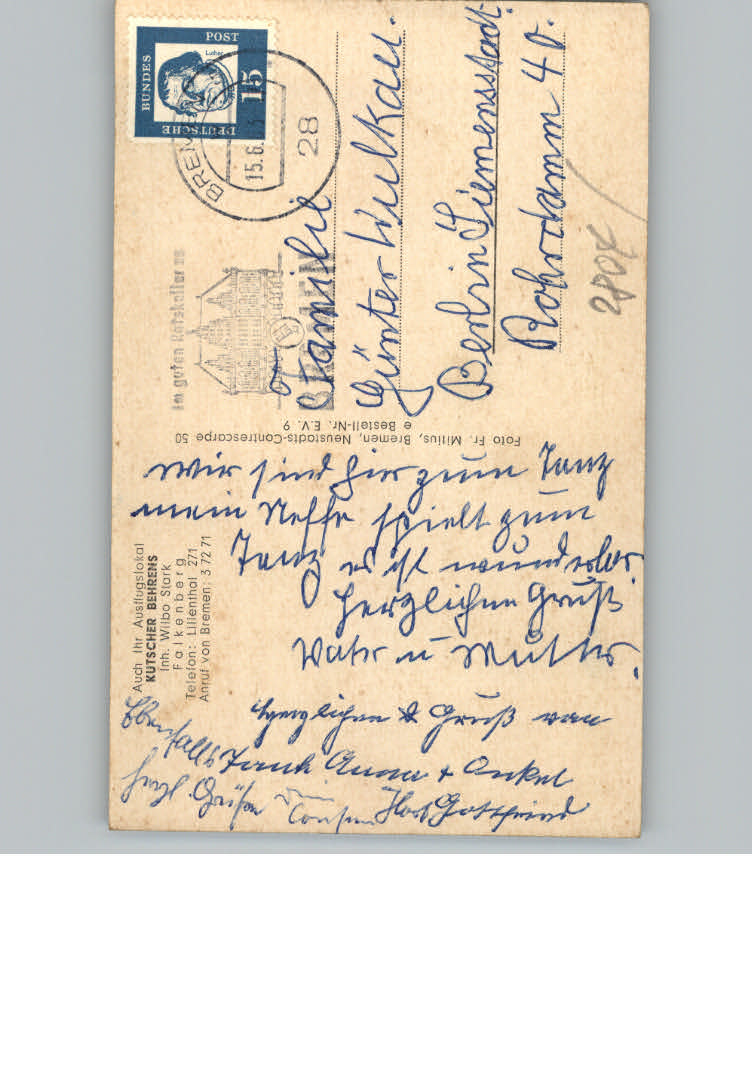 Auch Ihr Ausflugslokal
KUTSCHER BEHRENS
Inh. Wilbo Stark
Falkenberg
Telefon: Lilienthal 271
Anruf von Bremen: 3 72 71
Wir sind hier zum Tanz
mein Neffe spielt zum
Tanz es ist wunderbar.
Herzlichen Gruß
Vater u Mutter.
Herzlichen Gruß von
Tante Anna + Onkel
Gottfried
Ebenfalls
herzl Grüße
Foto Fr. Mitius, Bremen, Neustadts-Contrescarpe 50
e Bestell-Nr. E.V. 9
DEUTSCHE
BUNDES
POST
Luther
15
BREMEN
15.6.
28
im guten Ratskeller zu
BREMEN
Familie
Günter Wulkau.
Berlin Siemensstadt.
Rohrdamm 40.